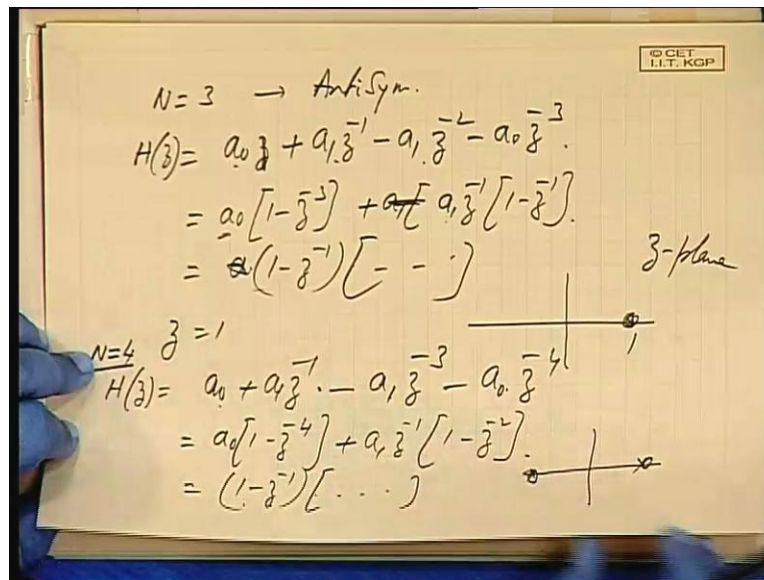 © CET
I.I.T. KGP
N = 3 → AntiSym.
H(z) = a₀ z + a₁ z⁻¹ − a₁ z⁻² − a₀ z⁻³.
= a₀ [1 − z⁻³] + a₁ z⁻¹ [1 − z⁻¹].
= (1 − z⁻¹) [ - - · ]
z-plane
1
z = 1
N=4
H(z) = a₀ + a₁ z⁻¹ · − a₁ z⁻³ − a₀ z⁻⁴
= a₀ [1 − z⁻⁴] + a₁ z⁻¹ [1 − z⁻²].
= (1 − z⁻¹) [ . . . . ]